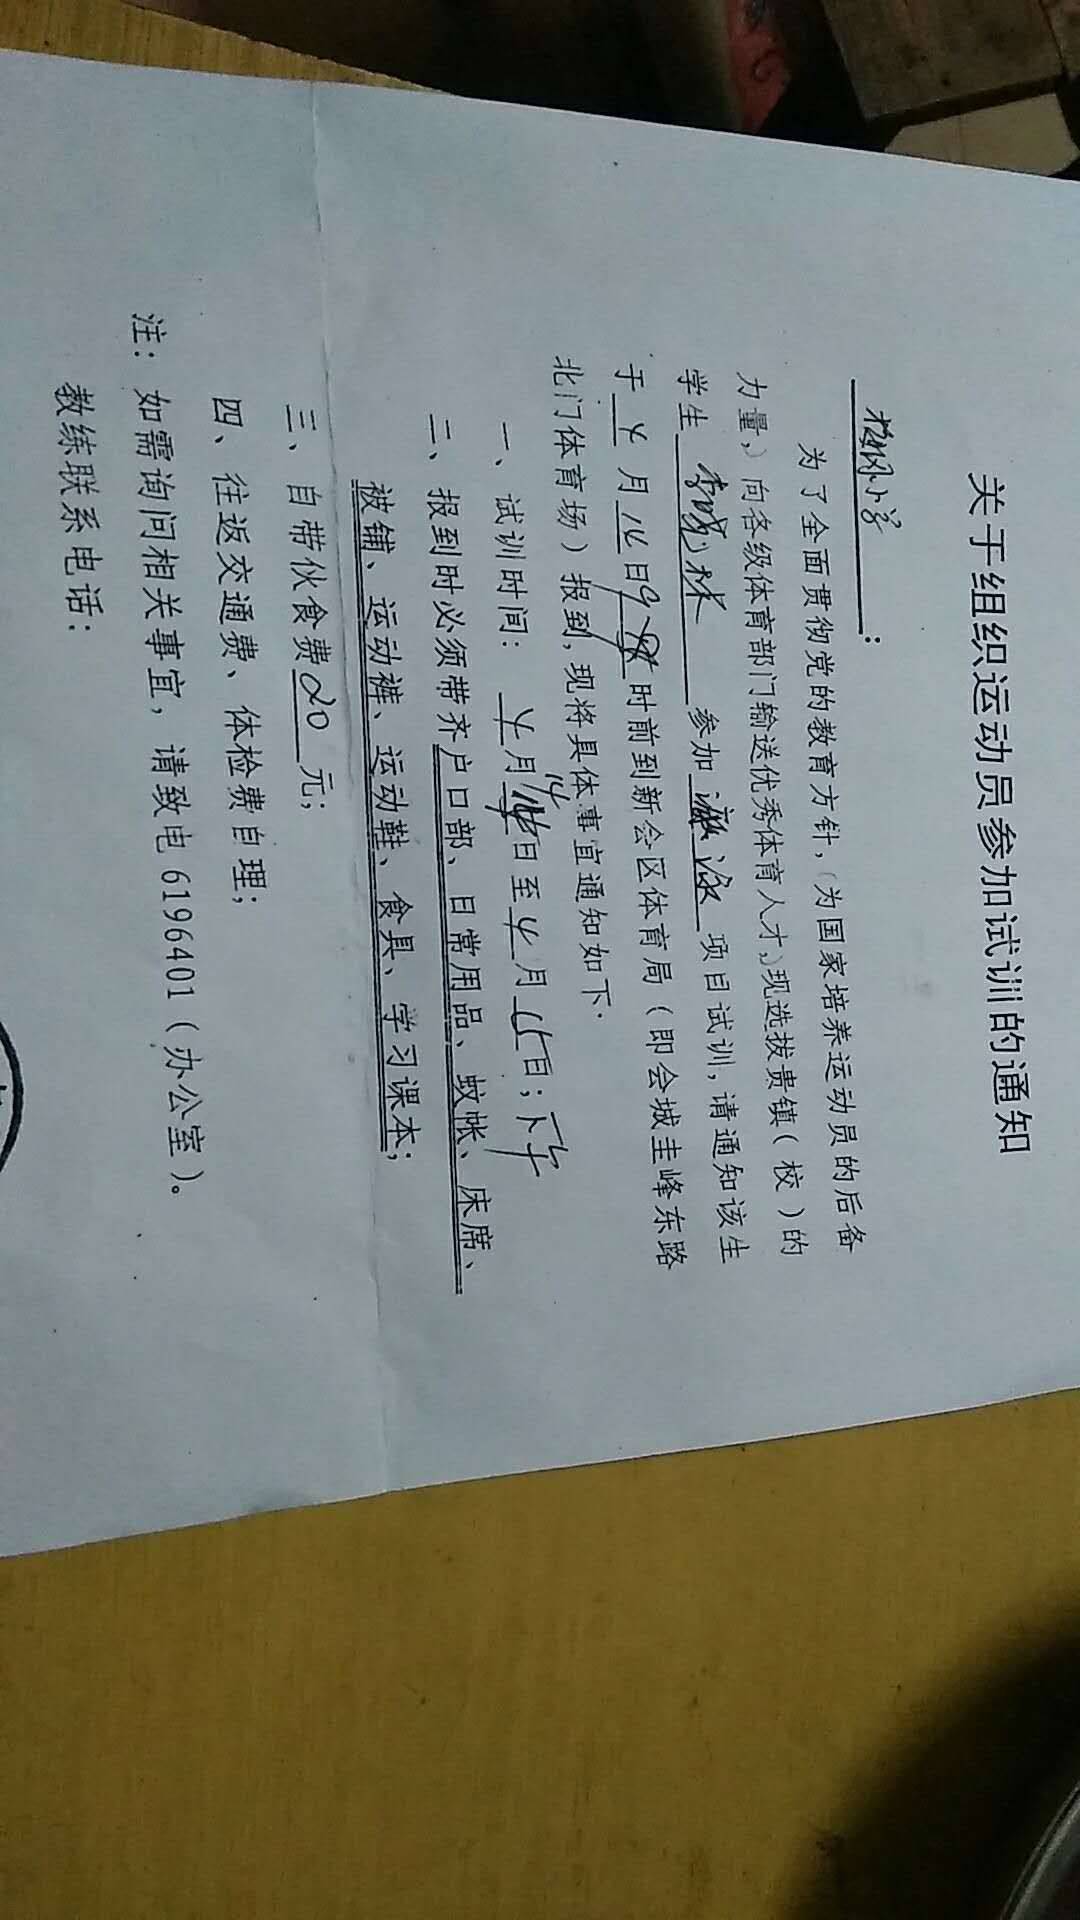 关于组织运动员参加试训的通知
梅冈小学：
为了全面贯彻党的教育方针，（为国家培养运动员的后备
力量，）向各级体育部门输送优秀体育人才，现选拔贵镇（校）的
学生 林 参加 项目试训，请通知该生
于 4 月 14 日 9 时前到新会区体育局（即会城圭峰东路
北门体育场）报到，现将具体事宜通知如下.
一、试训时间： 4 月 14 日至 4 月 15 日；下午
二、报到时必须带齐户口部、日常用品、蚊帐、床席、
被铺、运动裤、运动鞋、食具、学习课本；
三、自带伙食费 20 元；
四、往返交通费、体检费自理；
注：如需询问相关事宜，请致电 6196401（办公室）。
教练联系电话：